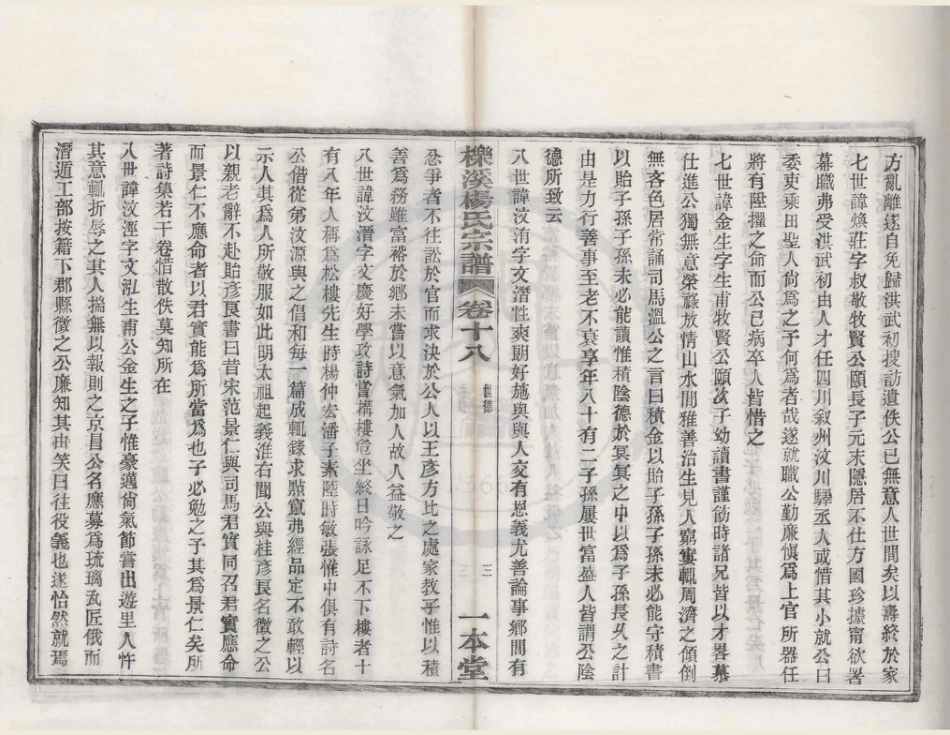 方亂離遂自免歸洪武初搜訪遺佚公已無意人世間矣以壽終於家
七世諱煥莊字叔敬牧賢公頤長子元末隱居不仕方國珍據甯欲署
幕職弗受洪武初由人才任四川敘州汶川驛丞人或惜其小就公曰
委吏乘田聖人尙爲之予何爲者哉遂就職公勤廉愼爲上官所器任
將有陞擢之命而公已病卒人皆惜之
七世諱金生字生甫牧賢公頤次子幼讀書謹飭時諸兄皆以才畧慕
仕進公獨無意榮祿放情山水間雅善治生見人窮窶輒周濟之傾倒
無吝色居常誦司馬溫公之言曰積金以貽子孫子孫未必能守積書
以貽子孫子孫未必能讀惟積陰德於冥冥之中以爲子孫長久之計
由是力行善事至老不衰享年八十有二子孫屢世富盛人皆謂丕陰
德所致云
八世諱汶洧字文潛性爽朗好施與與人交有恩義尤善論事鄉閭有
忿爭者不往訟於官而求決於公人以王彥方比之處家敎子惟以積
善爲務雖富裕於鄉未嘗以意氣加人故人益敬之
八世諱汶潛字文慶好學攻詩嘗構樓危坐終日吟詠足不下樓者十
有八年人稱爲松樓先生時楊仲宏潘子素陸時敏張惟中俱有詩名
公偕從弟汶源與之倡和每一篇成輒錄求點竄弗經品定不敢輕以
示人其爲人所敬服如此明太祖起義淮右聞公與桂彥良名徵之公
以親老辭不赴貽彥良書曰昔宋范景仁與司馬君實同召君實應命
而景仁不應命者以君實能爲所當爲也子必勉之予其爲景仁矣所
著詩集若干卷惜散佚莫知所在
八世諱汶涇字文泓生甫公金生之子惟豪邁尙氣節嘗出遊里人忤
其意輒折辱之其人揣無以報則之京冒公名應募爲琉璃瓦匠俄而
潛遁工部按籍下郡縣徵之公廉知其由笑曰往役義也遂怡然就焉
櫟溪楊氏宗譜 卷十八 世德 三 一本堂